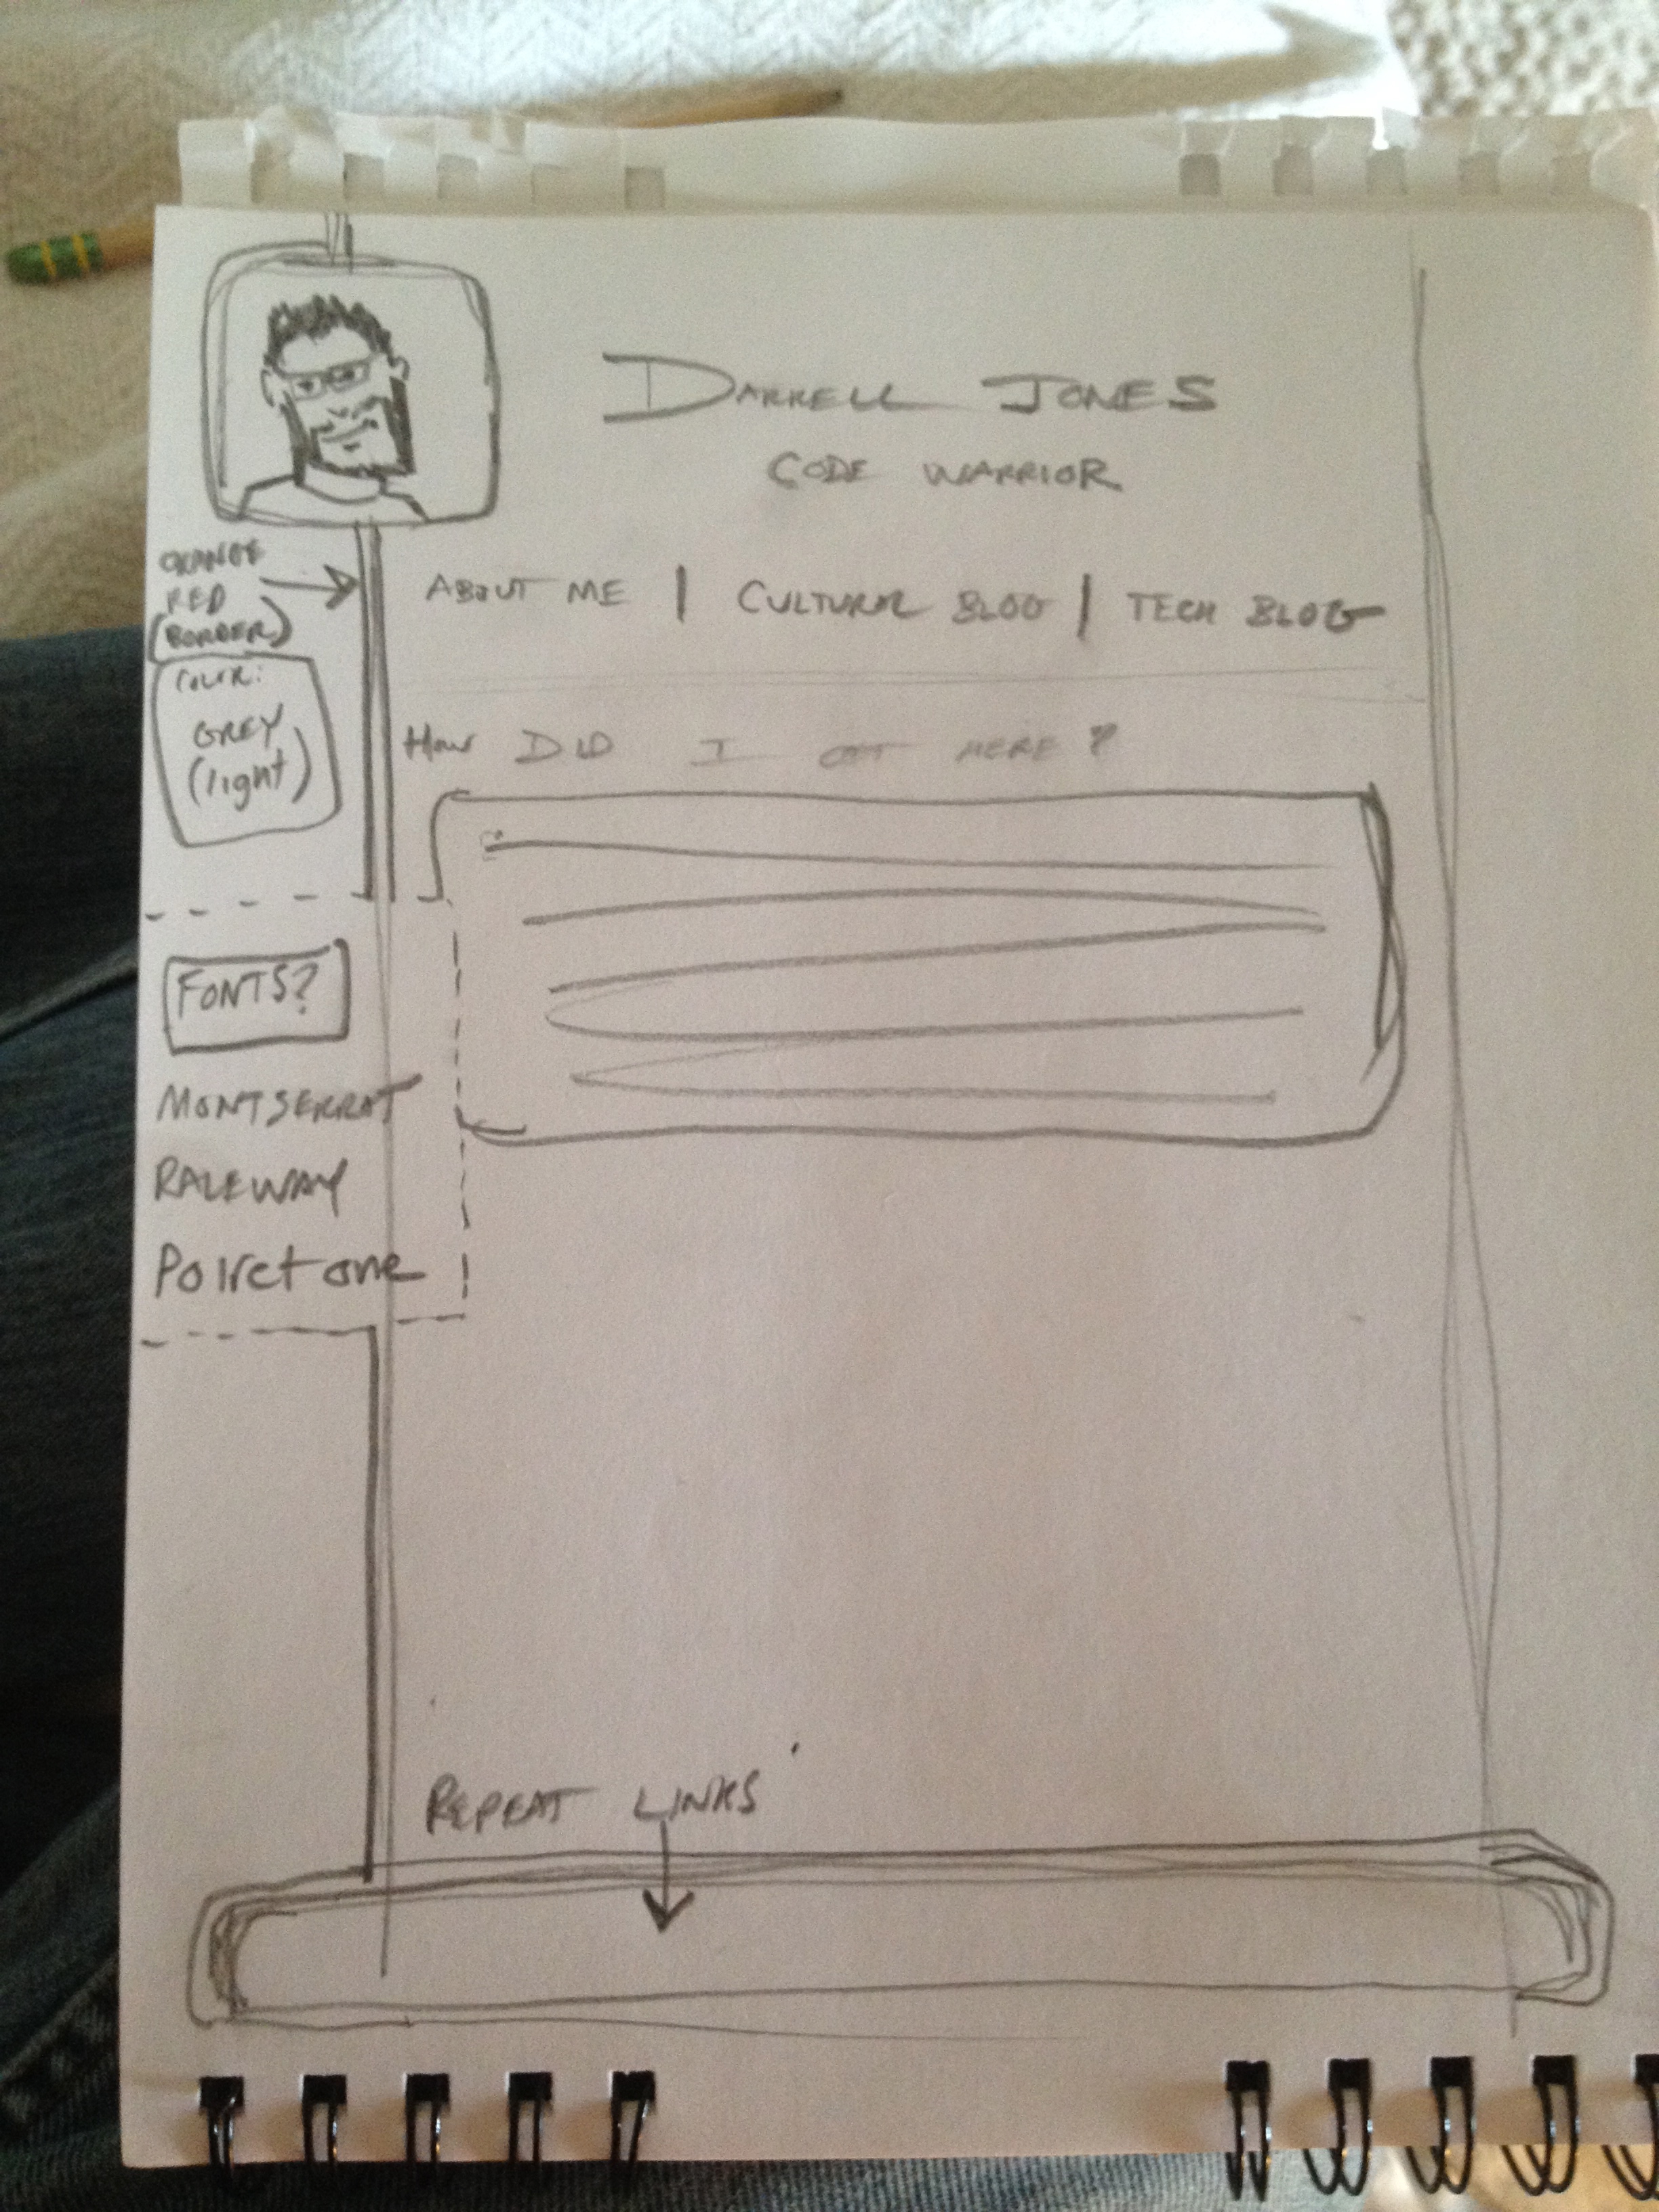 DARRELL JONES
CODE WARRIOR
ORANGE
RED
(BORDER)
ABOUT ME | CULTURAL BLOG | TECH BLOG
COLOR:
GREY
(light)
HOW DID I GET HERE?
FONTS?
MONTSERRAT
RALEWAY
Poiret one
REPEAT LINKS